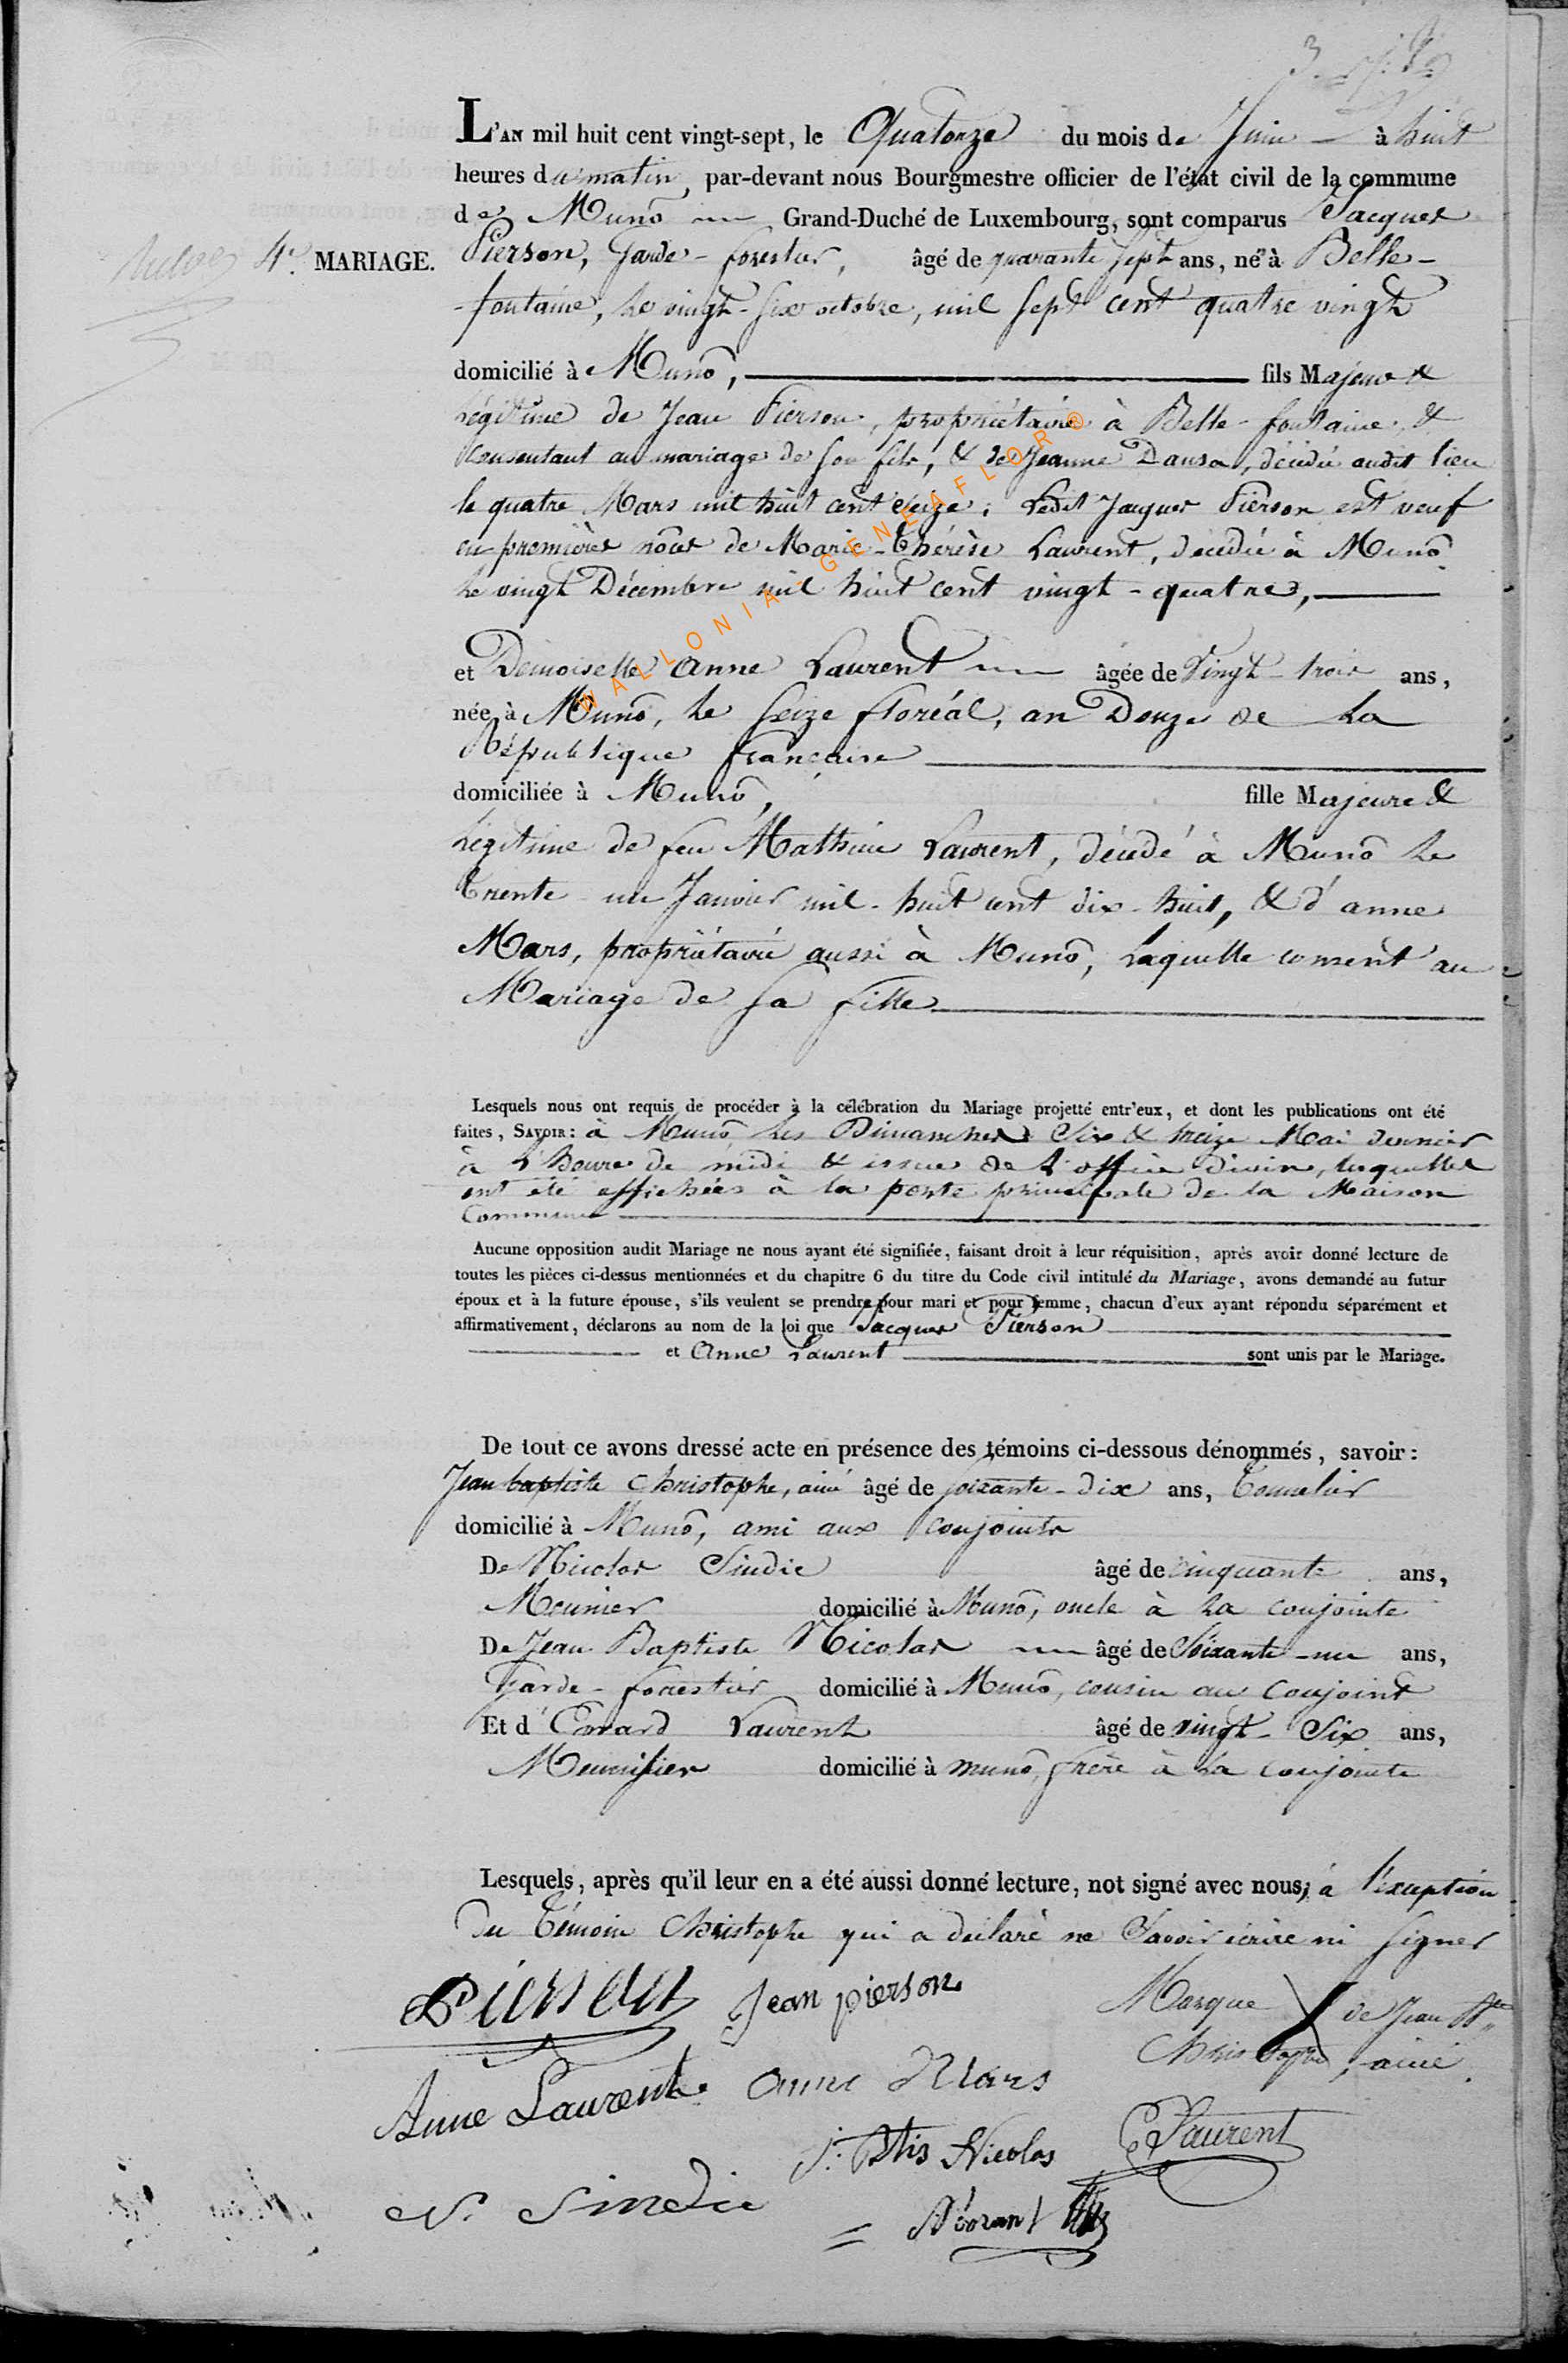 L'AN mil huit cent vingt-sept, le Quatorze du mois de Juin - à huit
heures du matin, par-devant nous Bourgmestre officier de l'état civil de la commune
de Munô Grand-Duché de Luxembourg, sont comparus Jacques
4e. MARIAGE. Pierson, Garde-forestier, âgé de quarante sept ans, né à Belle-
-fontaine, le vingt-six octobre, mil sept cent quatre vingt
domicilié à Munô, fils Majeur &
Légitime de Jean Pierson, propriétaire à Belle-fontaine, &
consentant au mariage de son fils, & de Jeanne Dausa, décédée audit lieu
le quatre Mars mil huit cent seize; Ledit Jacques Pierson est veuf
en premières nôces de Marie-Thérèse Laurent, décédée à Munô
le vingt Décembre mil huit cent vingt-quatre,
et Demoiselle Anne Laurent âgée de Vingt-trois ans,
née à Munô, le seize floréal, an Douze de La
République française
domiciliée à Munô, fille Majeure &
Légitime de feu Mathieu Laurent, décédé à Munô le
trente-un Janvier mil-huit cent dix-huit, & d'anne
Mars, propriétaire aussi à Munô, Laquelle consent au
Mariage de sa fille
Lesquels nous ont requis de procéder à la célébration du Mariage projetté entr'eux, et dont les publications ont été
faites, SAVOIR: à Munô, les Dimanches Six & treize Mai dernier
à L'heure de midi & issue de L'office divin, lesquelles
ont été affichées à la porte principale de la Maison
Commune
Aucune opposition audit Mariage ne nous ayant été signifiée, faisant droit à leur réquisition, après avoir donné lecture de
toutes les pièces ci-dessus mentionnées et du chapitre 6 du titre du Code civil intitulé du Mariage, avons demandé au futur
époux et à la future épouse, s'ils veulent se prendre pour mari et pour femme, chacun d'eux ayant répondu séparément et
affirmativement, déclarons au nom de la loi que Jacques Pierson
et Anne Laurent sont unis par le Mariage.
De tout ce avons dressé acte en présence des témoins ci-dessous dénommés, savoir:
Jean baptiste Christophe, ainé âgé de soixante-dix ans, Tonnelier
domicilié à Munô, ami aux conjoints
De Nicolas Sindic âgé de cinquante ans,
Meunier domicilié à Munô, oncle à La conjointe
De Jean Baptiste Nicolas âgé de Soixante-un ans,
Garde-forrestier domicilié à Munô, cousin au conjoint
Et d'Evrard Laurent âgé de vingt-Six ans,
Menuisier domicilié à munô, frère à La conjointe
Lesquels, après qu'il leur en a été aussi donné lecture, not signé avec nous, à l'exception
du témoin Christophe qui a déclaré ne Savoir écrire ni signer
Pierson Jean pierson Marque de Jean Bte
Christophe, ainé.
Anne Laurent anne Mars
J: Btis Nicolas E Laurent
N. Sindic
WALLONIA-GENEAFLOR ©